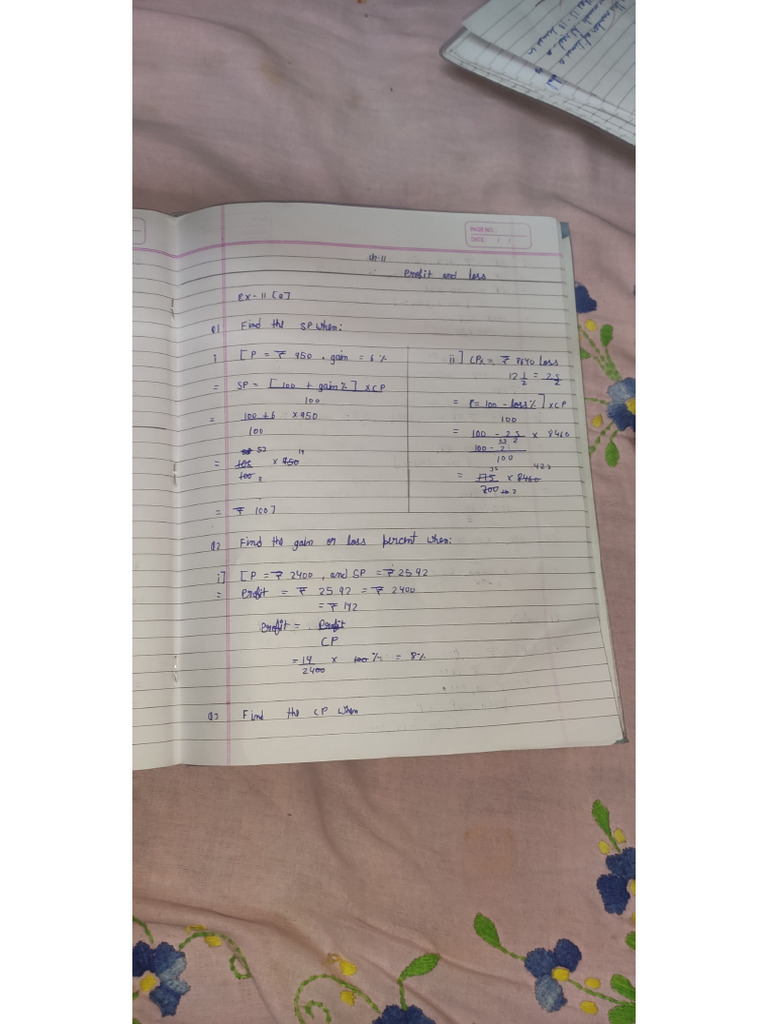 PAGE NO.:
DATE: / /
ch-11
Profit and loss
Ex-11 [a]
Q1 Find the SP when:
i [P = ₹ 950, gain = 6%
= SP = [100 + gain%] × CP
100
= 100+6 × 950
100
= × 950
100 2
= ₹ 1007
ii] CP = ₹ loss
12 1/2 = 25/2
= P = 100 - loss%] × CP
100
= 100 - 25 × 8460
2
100
= 175 × 8460
200
Q2 Find the gain or loss percent when:
i] [P = ₹ 2400, and SP = ₹ 2592
= Profit = ₹ 2592 = ₹ 2400
= ₹ 192
Profit = Profit
CP
= 19 × 100% = 8%
2400
Q3 Find the CP when